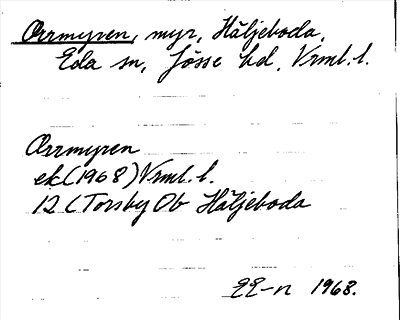 Orrmyren, myr, Häljeboda,
Eda sn, Jösse hd, Vrml. l.
Orrmyren
ek (1968) Vrml. l.
12 C Torsby Ob Häljeboda
EE-n 1968.